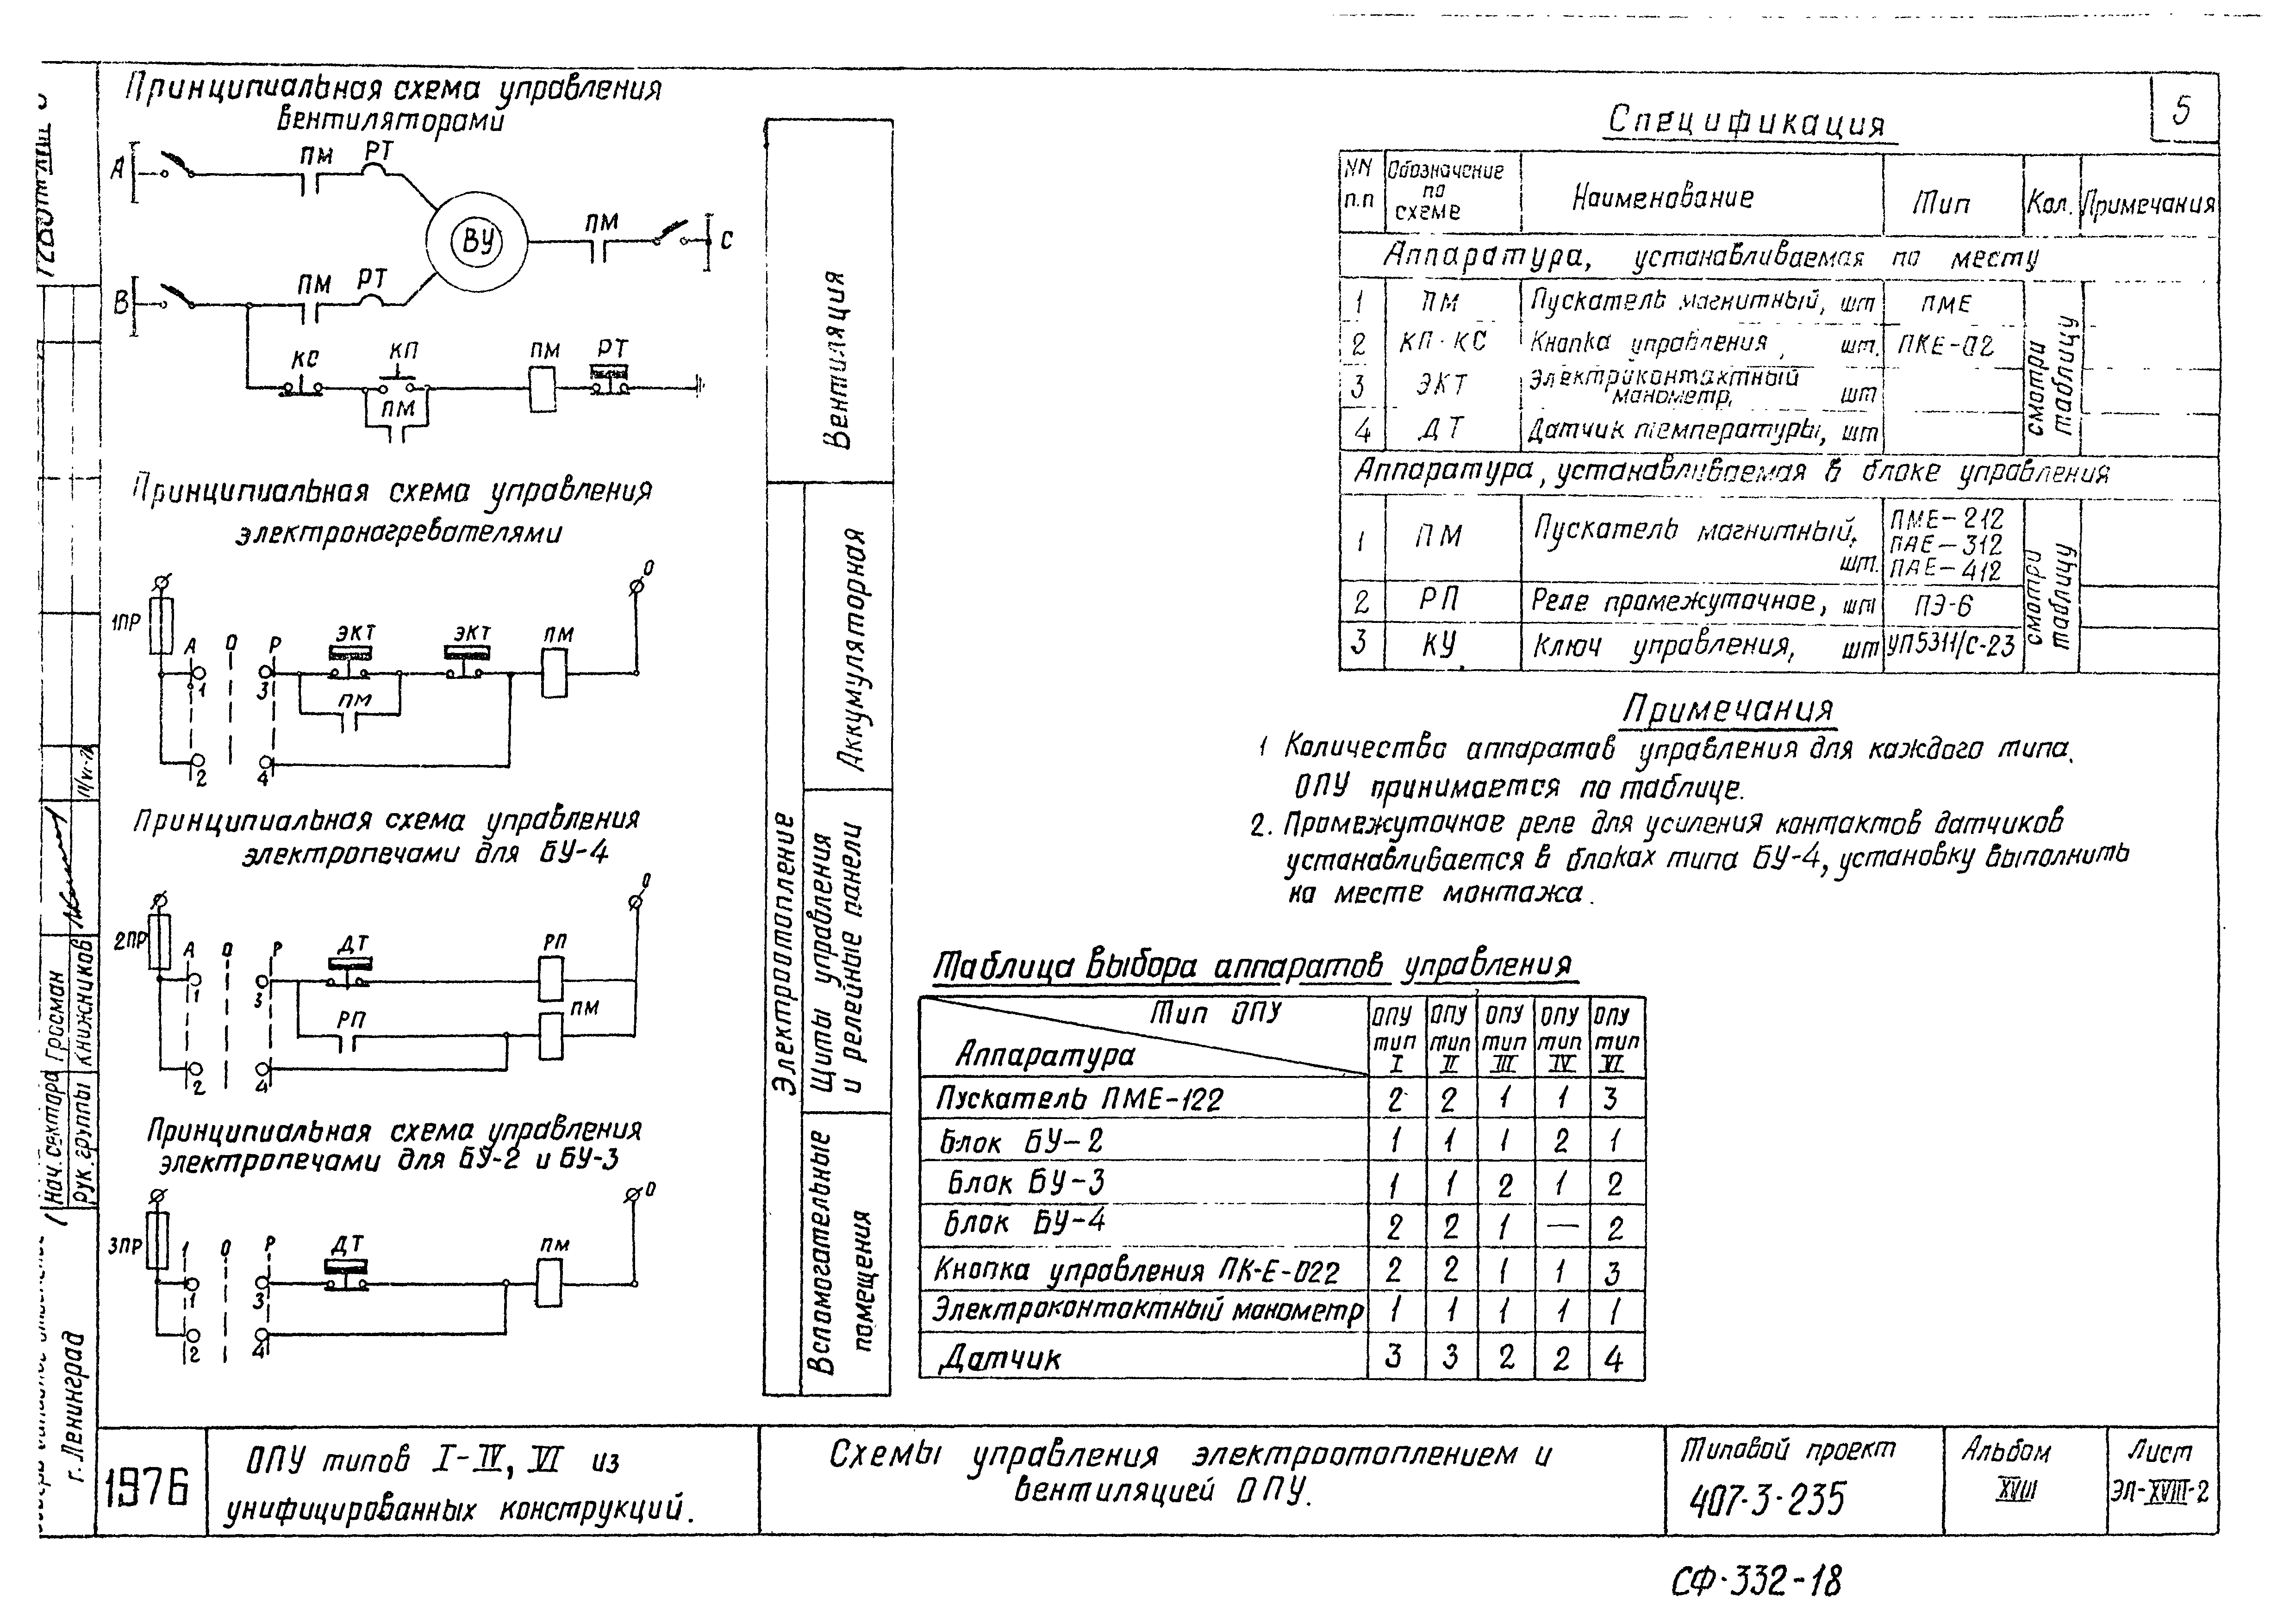 5
Принципиальная схема управления
вентиляторами
А
ПМ
РТ
ВУ
ПМ
С
В
ПМ
РТ
КС
КП
ПМ
РТ
ПМ
Принципиальная схема управления
электронагревателями
1ПР
А
О
Р
ЭКТ
ЭКТ
ПМ
О
1
3
ПМ
2
4
Принципиальная схема управления
электропечами для БУ-4
2ПР
А
О
Р
ДТ
РП
О
1
3
РП
ПМ
2
4
Принципиальная схема управления
электропечами для БУ-2 и БУ-3
3ПР
1
О
Р
ДТ
ПМ
О
1
3
2
4
Вентиляция
Электроотопление
Аккумуляторная
Щиты управления
и релейные панели
Вспомогательные
помещения
Спецификация
NN п.п | Обозначение по схеме | Наименование | Тип | Кол. | Примечания
Аппаратура, устанавливаемая по месту
1 | ПМ | Пускатель магнитный, шт | ПМЕ
2 | КП·КС | Кнопка управления, шт. | ПКЕ-02
3 | ЭКТ | Электроконтактный манометр, шт
4 | ДТ | Датчик температуры, шт
смотри таблицу
Аппаратура, устанавливаемая в блоке управления
1 | ПМ | Пускатель магнитный, шт. | ПМЕ-212 ПАЕ-312 ПАЕ-412
2 | РП | Реле промежуточное, шт | ПЭ-6
3 | КУ | Ключ управления, шт | УП5311/С-23
смотри таблицу
Примечания
1 Количество аппаратов управления для каждого типа.
ОПУ принимается по таблице.
2. Промежуточное реле для усиления контактов датчиков
устанавливается в блоках типа БУ-4, установку выполнить
на месте монтажа.
Таблица выбора аппаратов управления
Аппаратура | Тип ОПУ | ОПУ тип I | ОПУ тип II | ОПУ тип III | ОПУ тип IV | ОПУ тип VI
Пускатель ПМЕ-122 | 2 | 2 | 1 | 1 | 3
Блок БУ-2 | 1 | 1 | 1 | 2 | 1
Блок БУ-3 | 1 | 1 | 2 | 1 | 2
Блок БУ-4 | 2 | 2 | 1 | — | 2
Кнопка управления ПК-Е-022 | 2 | 2 | 1 | 1 | 3
Электроконтактный манометр | 1 | 1 | 1 | 1 | 1
Датчик | 3 | 3 | 2 | 2 | 4
Нач. сектора Гросман
Рук. группы Книжников
г. Ленинград
1976
ОПУ типов I-IV, VI из
унифицированных конструкций.
Схемы управления электроотоплением и
вентиляцией ОПУ.
Типовой проект
407-3-235
Альбом
XVIII
Лист
ЭЛ-XVIII-2
СФ·332-18